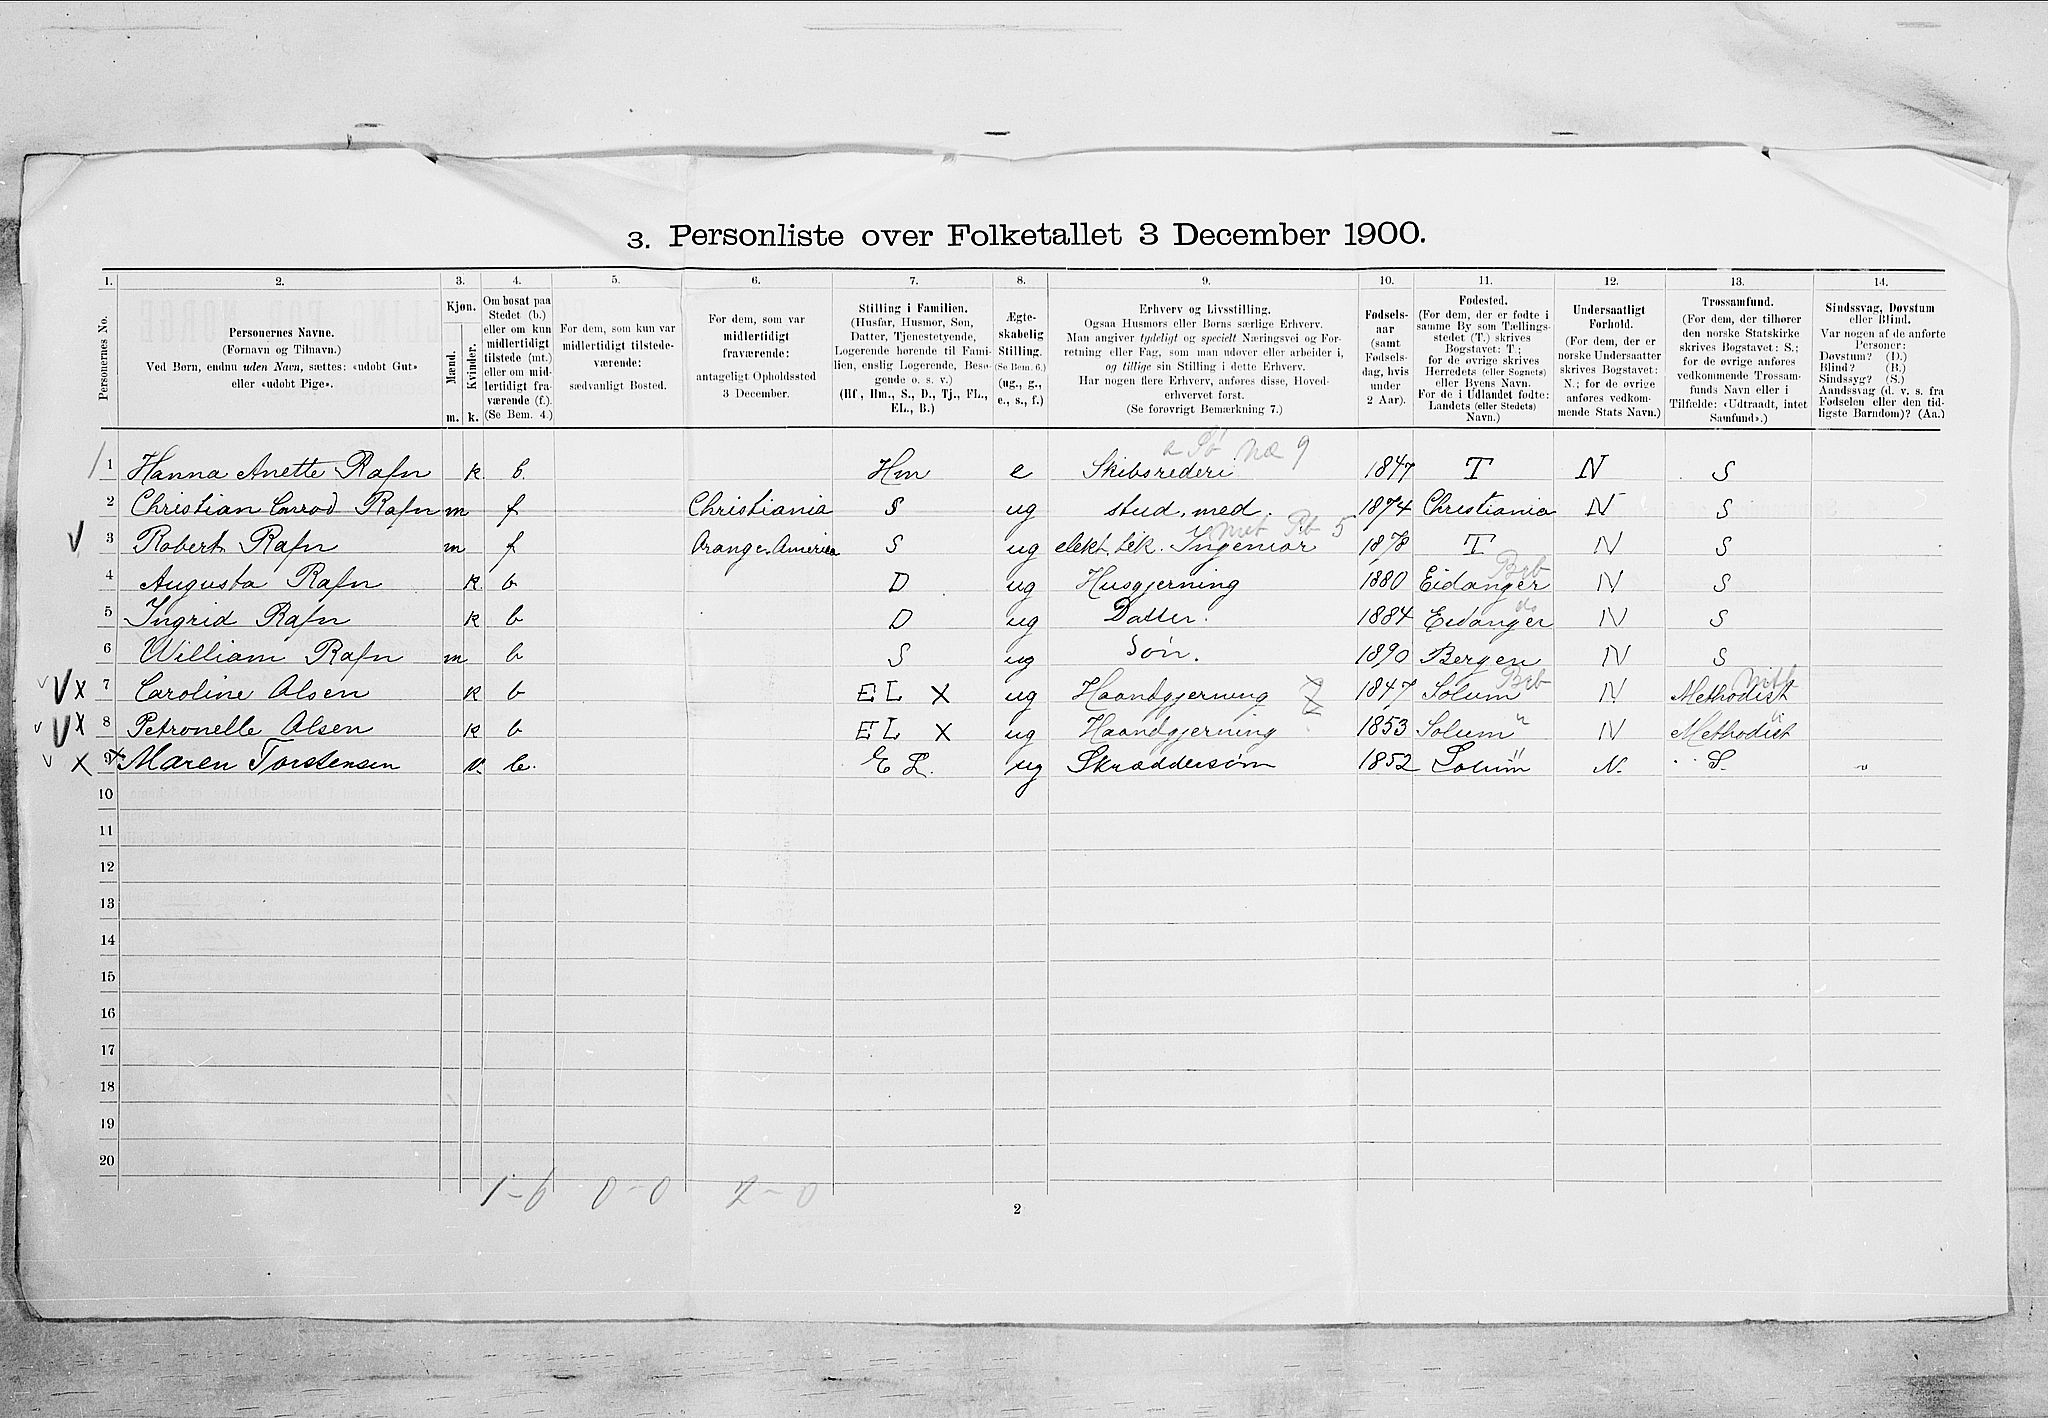 3. Personliste over Folketallet 3 December 1900.
1. 2. 3. 4. 5. 6. 7. 8. 9. 10. 11. 12. 13. 14.
Personernes No.
Personernes Navne.
(Fornavn og Tilnavn.)
Ved Børn, endnu uden Navn, sættes: «udobt Gut»
eller «udobt Pige».
Kjøn.
Mænd. Kvinder.
m. k.
Om bosat paa
Stedet (b.)
eller om kun
midlertidigt
tilstede (mt.)
eller om mid-
lertidigt fra-
værende (f.)
(Se Bem. 4.)
For dem, som kun var
midlertidigt tilstede-
værende:
sædvanligt Bosted.
For dem, som var
midlertidigt
fraværende:
antageligt Opholdssted
3 December.
Stilling i Familien.
(Husfar, Husmor, Søn,
Datter, Tjenestetyende,
Logerende hørende til Fami-
lien, enslig Logerende, Besø-
gende o. s. v.)
(Hf., Hm., S., D., Tj., FL.,
EL., B.)
Ægte-
skabelig
Stilling.
(Se Bem. 6.)
(ug., g.,
e., s., f.)
Erhverv og Livsstilling.
Ogsaa Husmors eller Børns særlige Erhverv.
Man angiver tydeligt og specielt Næringsvei og For-
retning eller Fag, som man udøver eller arbeider i,
og tillige sin Stilling i dette Erhverv.
Har nogen flere Erhverv, anføres disse, Hoved-
erhvervet først.
(Se forøvrigt Bemærkning 7.)
Fødsels-
aar
(samt
Fødsels-
dag, hvis
under
2 Aar).
Fødested.
(For dem, der er fødte i
samme By som Tællings-
stedet (T.) skrives
Bogstavet: T.;
for de øvrige skrives
Herredets (eller Sognets)
eller Byens Navn.
For de i Udlandet fødte:
Landets (eller Stedets)
Navn.)
Undersaatligt
Forhold.
(For dem, der er
norske Undersaatter
skrives Bogstavet:
N.; for de øvrige
anføres vedkom-
mende Stats Navn.)
Trossamfund.
(For dem, der tilhører
den norske Statskirke
skrives Bogstavet: S.;
for de øvrige anføres
vedkommende Trossam-
funds Navn eller i
Tilfælde: «Udtraadt, intet
Samfund».)
Sindssvag, Døvstum
eller Blind.
Var nogen af de anførte
Personer:
Døvstum? (D.)
Blind? (B.)
Sindssyg? (S.)
Aandssvag (d. v. s. fra
Fødselen eller den tid-
ligste Barndom)? (Aa.)
1 Hanna Anette Rafn k b. Hm e Skibsrederi 1847 T N S
2 Christian Conrad Rafn m f Christiania S ug stud. med. 1874 Christiania N S
3 Robert Rafn m f Orange. Amerika S ug elekt. tek. Ingeniør 1878 T N S
4 Augusta Rafn k b D ug Husgjerning 1880 Eidanger N S
5 Ingrid Rafn k b D ug Datter. 1884 Eidanger N S
6 William Rafn m b S ug Søn. 1890 Bergen N S
7 Caroline Olsen k b EL X ug Haandgjerning 1847 Solum N Methodist
8 Petronelle Olsen k b EL X ug Haandgjerning 1853 Solum N Methodist
9 Maren Torstensen k. b. EL. ug Skræddersøm 1852 Solum N. S.
10
11
12
13
14
15
16
17
18
19
20
1-6 0-0 2-0
2